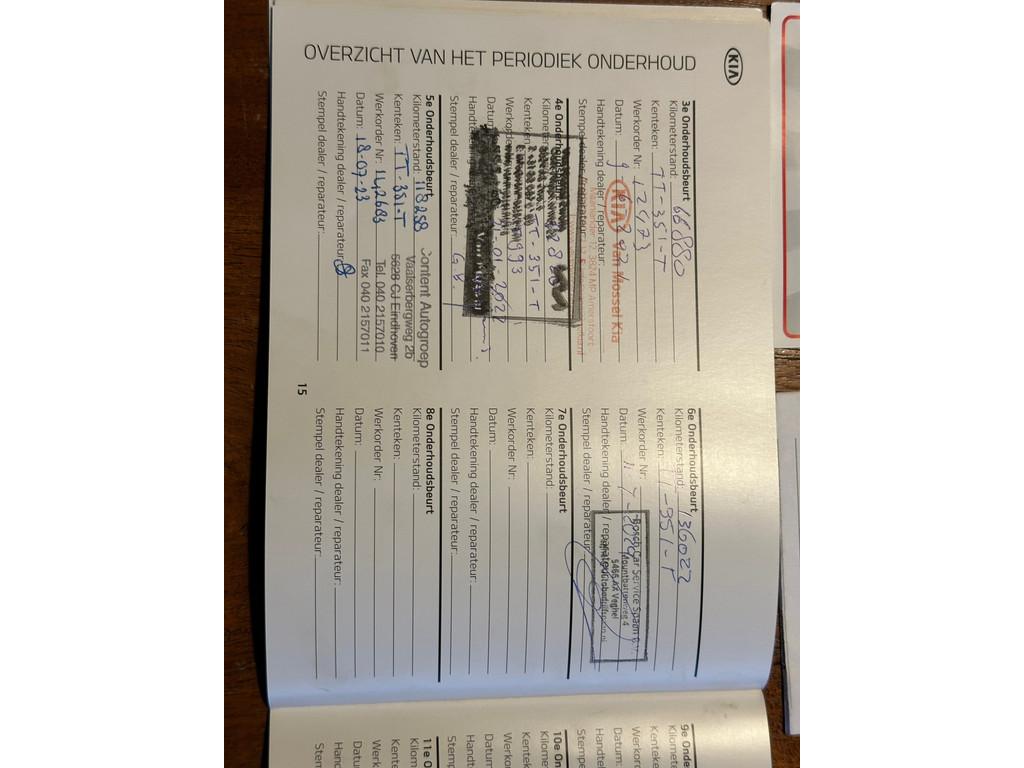 OVERZICHT VAN HET PERIODIEK ONDERHOUD
KIA
3e Onderhoudsbeurt
Kilometerstand: 66880
Kenteken: TT-351-T
Werkorder Nr: 12473
Datum: 9
Handtekening dealer / reparateur:
Stempel dealer / reparateur:
KIA Van Mossel Kia
12, 3824 MP Amersfoort
4e Onderhoudsbeurt
Kilometerstand:
Kenteken: TT-351-T
Werkorder 993
Datum: -01-2022
Handtekening
Stempel dealer / reparateur:
5e Onderhoudsbeurt
Kilometerstand: 118258
Kenteken: TT-351-T
Werkorder Nr: 142683
Datum: 18-07-23
Handtekening dealer / reparateur:
Stempel dealer / reparateur:
Content Autogroep
Vaalserbergweg 2b
5628 CJ Eindhoven
Tel. 040 2157010
Fax 040 2157011
6e Onderhoudsbeurt
Kilometerstand: 136022
Kenteken: TT-351-T
Werkorder Nr:
Datum: 11-7-2024
Handtekening dealer / reparateur:
Stempel dealer / reparateur:
Bosch Car Service Spaan B.V.
Mountbattenweg 4
Veghel
7e Onderhoudsbeurt
Kilometerstand:
Kenteken:
Werkorder Nr:
Datum:
Handtekening dealer / reparateur:
Stempel dealer / reparateur:
8e Onderhoudsbeurt
Kilometerstand:
Kenteken:
Werkorder Nr:
Datum:
Handtekening dealer / reparateur:
Stempel dealer / reparateur:
15
9e Onde
Kilome
Kente
Werko
Datum
Handt
Stemp
10e On
Kilom
Kente
Werko
Datu
Handt
Stemp
11e O
Kilo
Kent
Werk
Datu
Hand
Stem